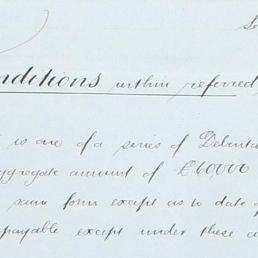 Conditions within referred
is one of a series of
aggregate amount of £60,000
same form except as to date of
payable except under these